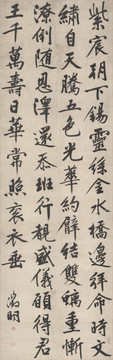 紫宸朝下錫靈絲金水橋邊拜命時文
繡自天騰五色光華約臂結雙螭重慚
潦倒隨恩澤還忝班行覲盛儀願得君
王千萬壽日華常照袞衣垂
徵明